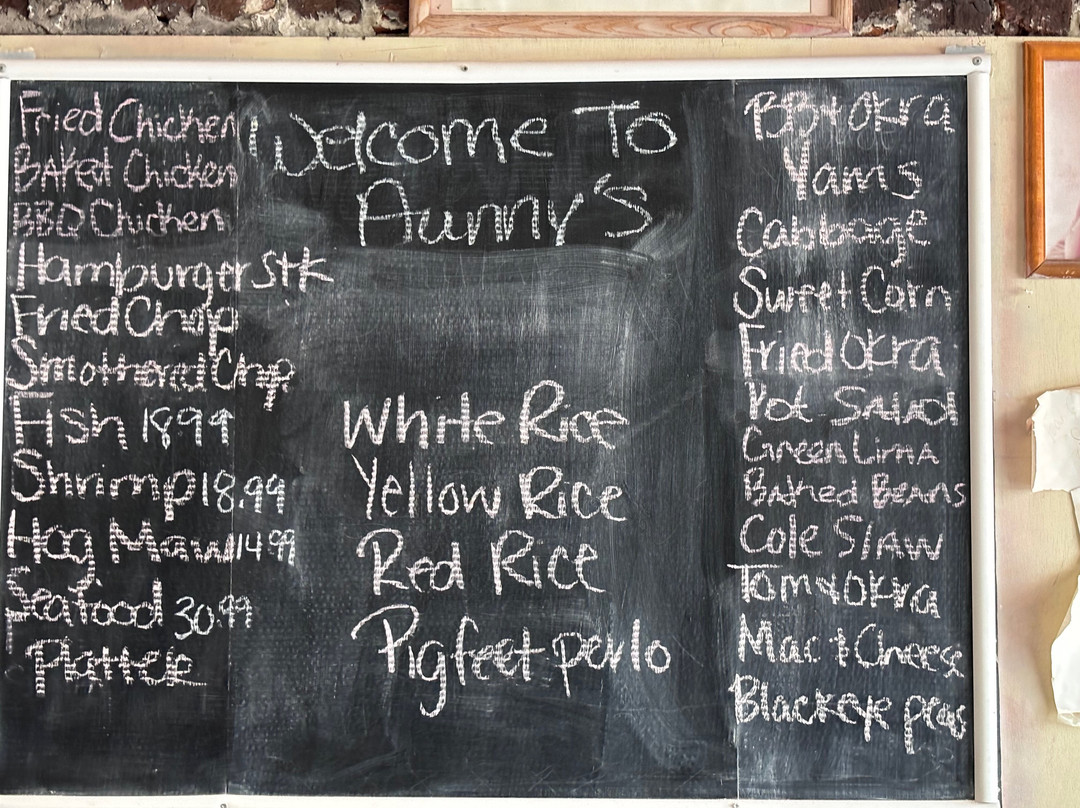 Fried Chicken
BAKed Chicken
BBQ Chicken
Hamburger Stk
Fried Chop
Smothered Chop
Fish 18.99
Shrimp 18.99
Hog Maw 14.99
Seafood 30.99
Platter
Welcome To
Aunny's
White Rice
Yellow Rice
Red Rice
Pigfeet perlo
BB+Okra
Yams
Cabbage
Sweet Corn
Fried Okra
Pot Salad
Green Lima
Baked Beans
Cole Slaw
Tom+Okra
Mac + Cheese
Blackeye peas